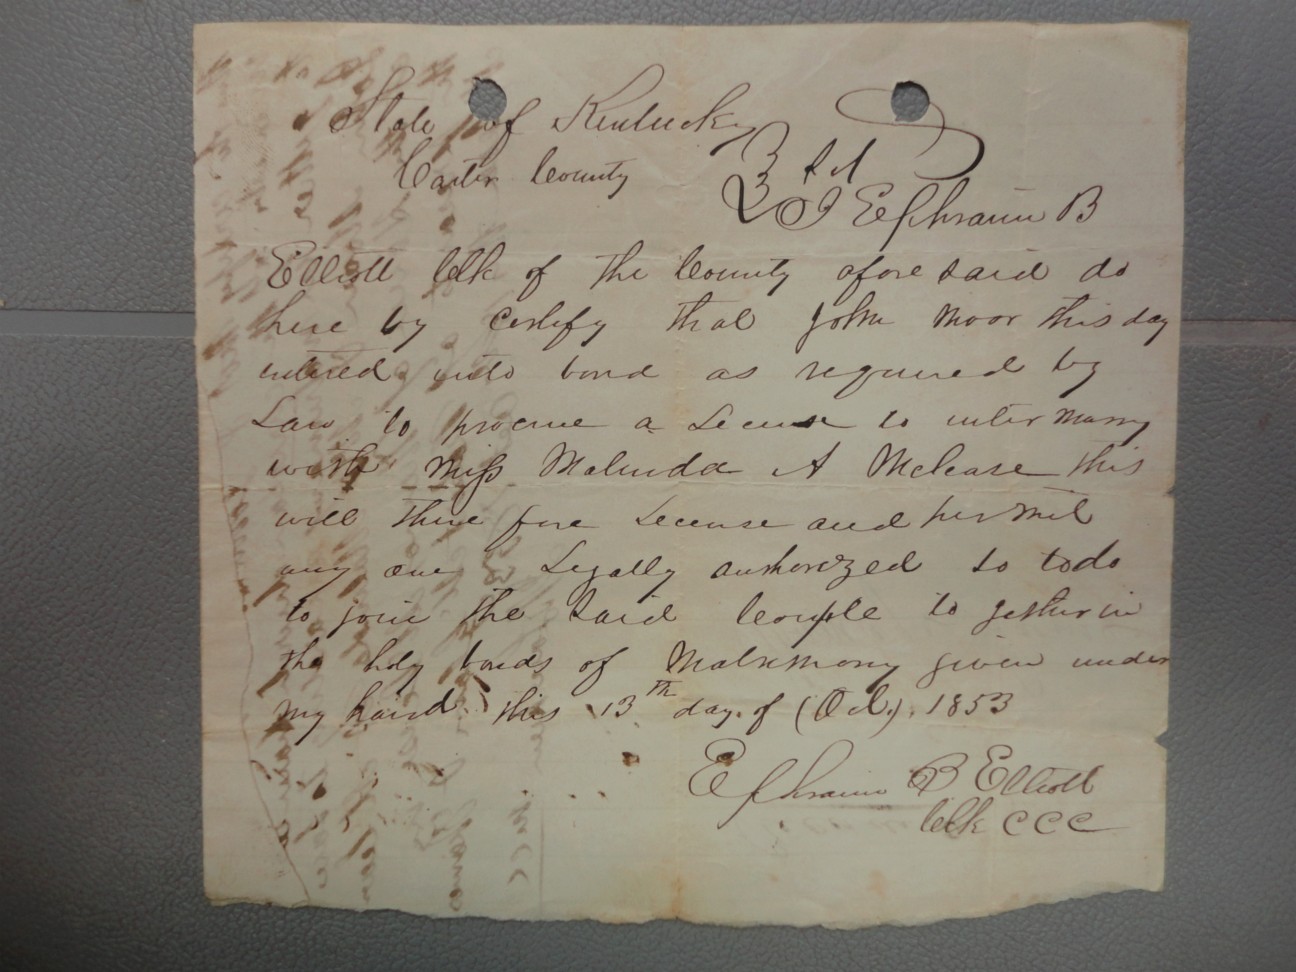 State of Kentucky
Carter County } Sct
I Ephraim B
Elliott Clk of the County afore said do
here by certify that John Moor this day
entered into bond as required by
Law to procure a License to inter marry
with Miss Malinda A McCase this
will there fore License and permit
any one Legally authorized so to do
to join the said Couple to gether in
the holy bonds of Matrimony given under
my hand this 13th day of (Oct). 1853
Ephraim B Elliott
Clk CCC